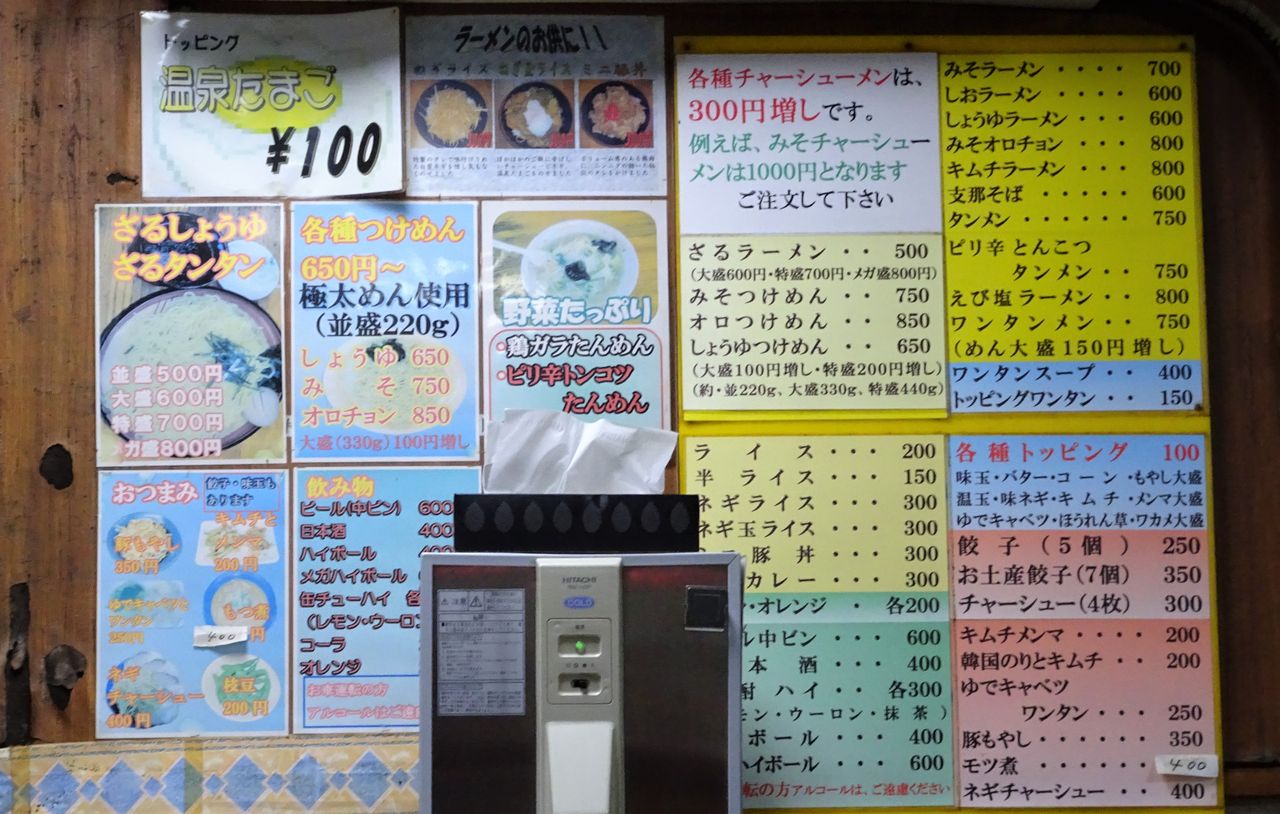 トッピング
温泉たまご
¥100
ラーメンのお供に！！
ねぎライス ねぎ玉ライス ミニ豚丼
ざるしょうゆ
ざるタンタン
並盛500円
大盛600円
特盛700円
メガ盛800円
各種つけめん
650円～
極太めん使用
（並盛220g）
しょうゆ 650
みそ 750
オロチョン 850
大盛（330g）100円増し
野菜たっぷり
・鶏ガラたんめん
・ピリ辛トンコツ
たんめん
おつまみ
餃子・味玉も
あります
豚もやし
350円
キムチと
メンマ
200円
ゆでキャベツと
ワンタン
250円
もつ煮
400円
ネギ
チャーシュー
400円
枝豆
200円
飲み物
ビール(中ビン) 600
日本酒 400
ハイボール 400
メガハイボール
缶チューハイ 各
（レモン・ウーロン
コーラ
オレンジ
お車運転の方
アルコールはご遠慮
各種チャーシューメンは、
300円増しです。
例えば、みそチャーシュー
メンは1000円となります
ご注文して下さい
ざるラーメン ・・ 500
（大盛600円・特盛700円・メガ盛800円）
みそつけめん ・・ 750
オロつけめん ・・ 850
しょうゆつけめん ・・ 650
（大盛100円増し・特盛200円増し）
（約・並220g、大盛330g、特盛440g）
みそラーメン ・・・・ 700
しおラーメン ・・・・ 600
しょうゆラーメン ・・・ 600
みそオロチョン ・・・ 800
キムチラーメン ・・・ 800
支那そば ・・・・・ 600
タンメン ・・・・・・ 750
ピリ辛とんこつ
タンメン ・・ 750
えび塩ラーメン ・・ 800
ワンタンメン ・・ 750
（めん大盛150円増し）
ワンタンスープ ・・ 400
トッピングワンタン ・・ 150
ライス ・・・ 200
半ライス ・・・ 150
ネギライス ・・・ 300
ネギ玉ライス ・・・ 300
豚丼 ・・・ 300
カレー ・・・ 300
・オレンジ ・ 各200
ル中ビン ・・・ 600
本酒 ・・・ 400
酎ハイ ・・ 各300
モン・ウーロン・抹茶）
ボール ・・・ 400
ハイボール ・・・ 600
転の方アルコールは、ご遠慮ください
各種トッピング 100
味玉・バター・コーン・もやし大盛
温玉・味ネギ・キムチ・メンマ大盛
ゆでキャベツ・ほうれん草・ワカメ大盛
餃子（5個） 250
お土産餃子(7個) 350
チャーシュー(4枚) 300
キムチメンマ ・・・・ 200
韓国のりとキムチ ・・ 200
ゆでキャベツ
ワンタン ・・・ 250
豚もやし・・・・・・ 350
モツ煮 ・・・・・ 400
ネギチャーシュー ・・ 400
HITACHI
COLD
注意